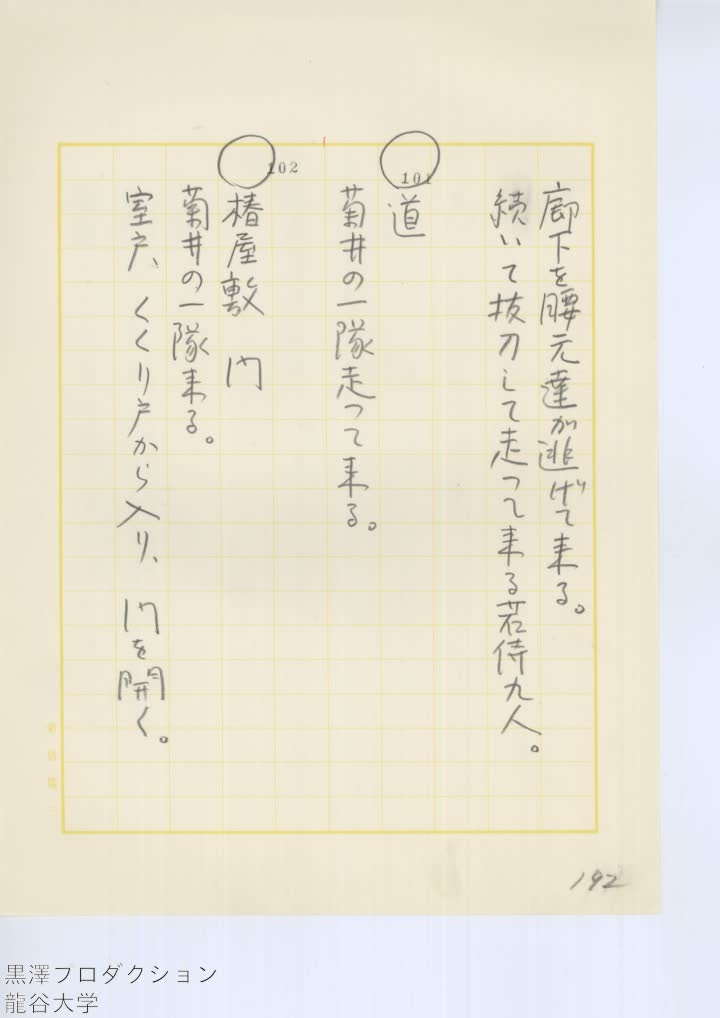 廊下を腰元達が逃げて来る。
続いて抜刀して走って来る若侍九人。
101
道
菊井の一隊走って来る。
102
椿屋敷 門
菊井の一隊来る。
室戸、くくり戸から入り、門を開く。
192
黒澤プロダクション
龍谷大学